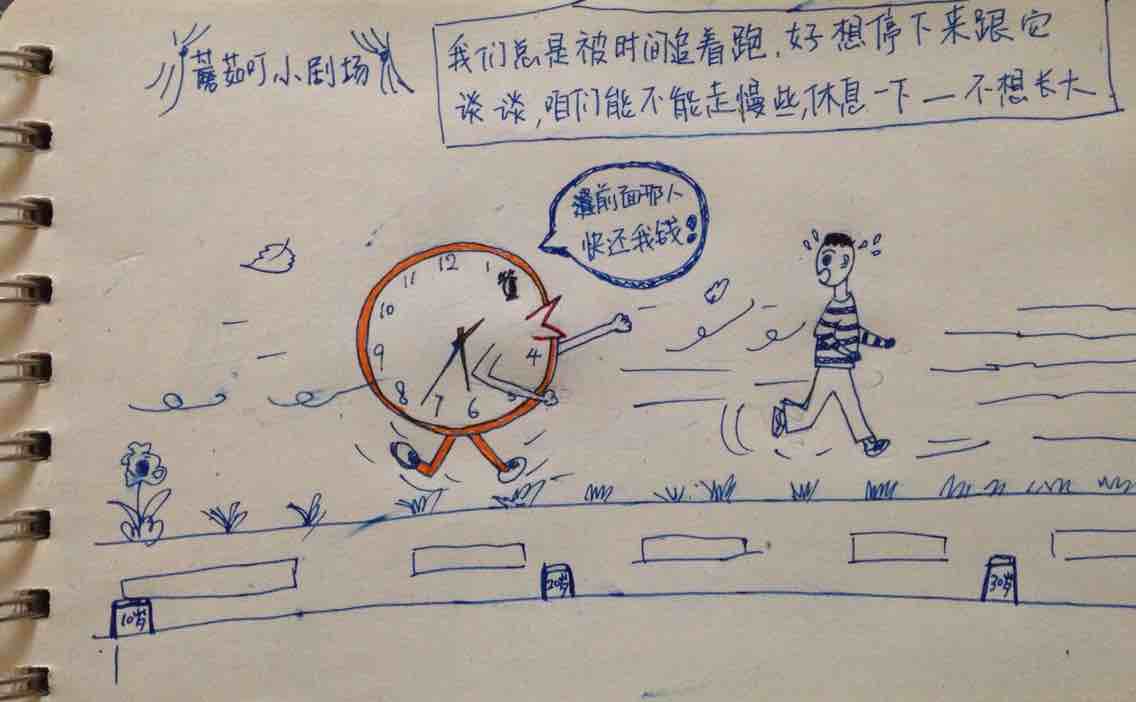 蘑茹叮小剧场
我们总是被时间追着跑，好想停下来跟它
谈谈，咱们能不能走慢些，休息一下—不想长大
前面那人
快还我钱！
12
1
11
10
9
8
7
6
5
4
10岁
20岁
30岁